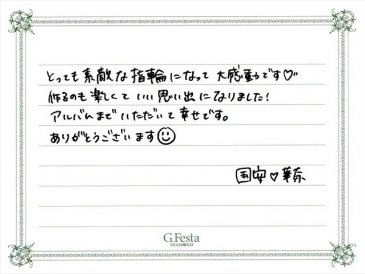 とっても素敵な指輪になって大感動です♡
作るのも楽しくていい思い出になりました!
アルバムまでいただいて幸せです。
ありがとうございます☺
国安♡華奈
G.Festa
DIAMOND